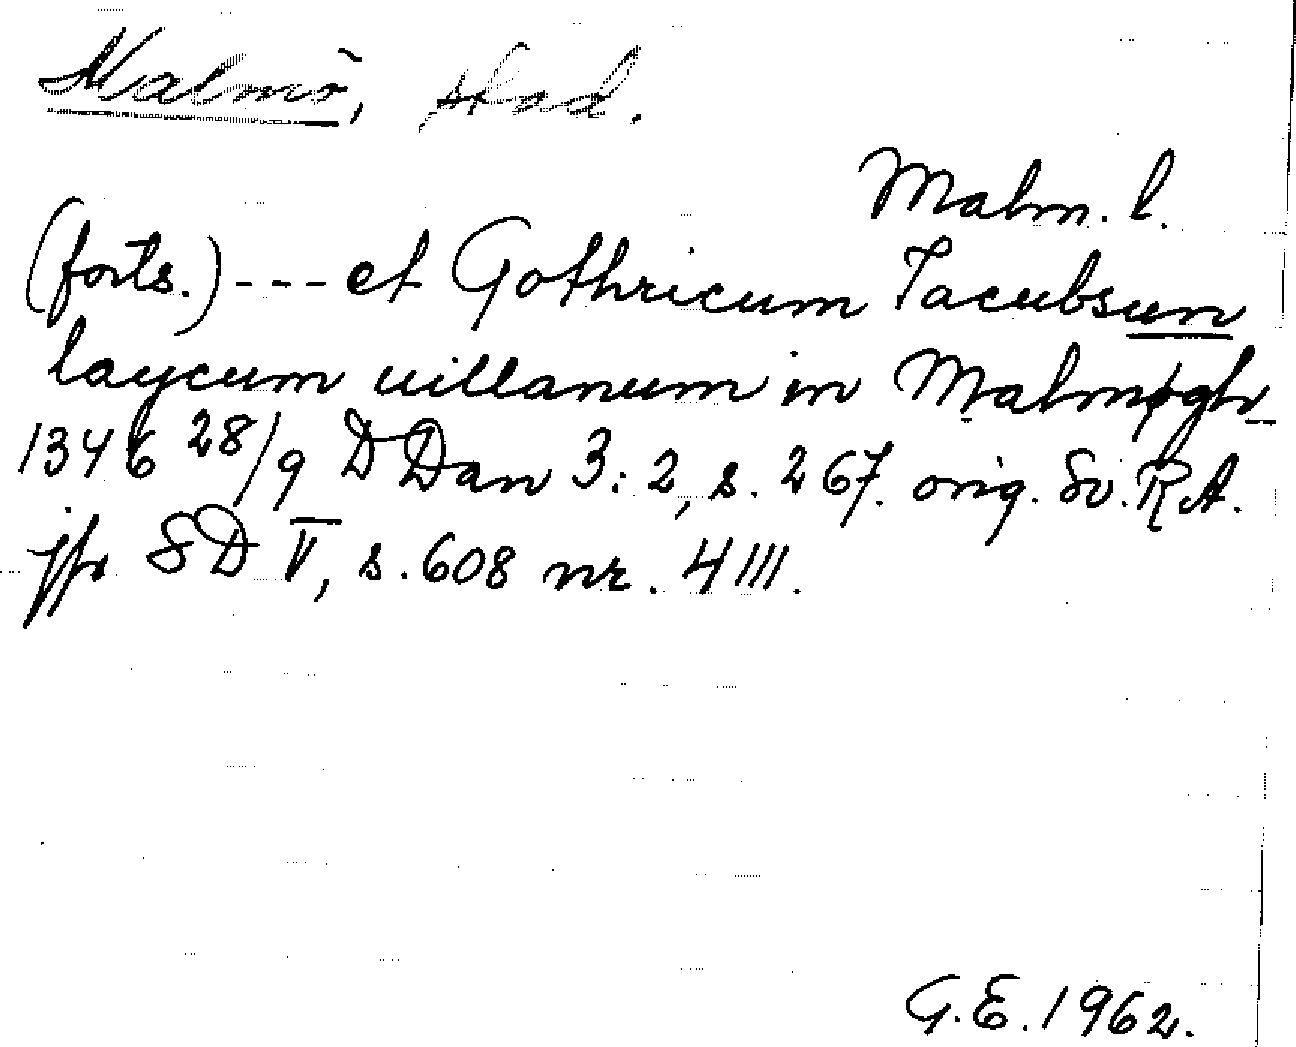 Malmö, stad.
Malm. l.
(forts.) --- et Gothricum Iacubsun
laycum uillanum in Malmøgh
1346 28/9 D Dan 3:2, s. 267. orig. Sv. R.A.
jfr SD V, s. 608 nr. 4111.
G.E. 1962.